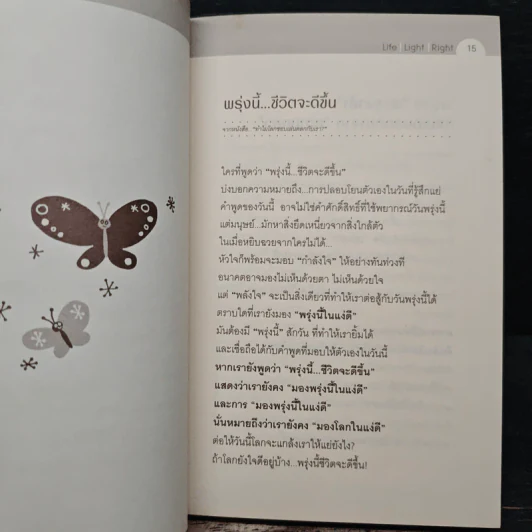 Life | Light | Right 15
พรุ่งนี้...ชีวิตจะดีขึ้น
จากหนังสือ "ทำไมโลกชอบเล่นตลกกับเรา?"
ใครที่พูดว่า "พรุ่งนี้...ชีวิตจะดีขึ้น"
บ่งบอกความหมายถึง...การปลอบโยนตัวเองในวันที่รู้สึกแย่
คำพูดของวันนี้ อาจไม่ใช่คำศักดิ์สิทธิ์ที่ใช้พยากรณ์วันพรุ่งนี้
แต่มนุษย์...มักหาสิ่งยึดเหนี่ยวจากสิ่งใกล้ตัว
ในเมื่อหยิบฉวยจากใครไม่ได้...
หัวใจก็พร้อมจะมอบ "กำลังใจ" ให้อย่างทันท่วงที
อนาคตอาจมองไม่เห็นด้วยตา ไม่เห็นด้วยใจ
แต่ "พลังใจ" จะเป็นสิ่งเดียวที่ทำให้เราต่อสู้กับวันพรุ่งนี้ได้
ตราบใดที่เรายังมอง "พรุ่งนี้ในแง่ดี"
มันต้องมี "พรุ่งนี้" สักวัน ที่ทำให้เรายิ้มได้
และเชื่อถือได้กับคำพูดที่มอบให้ตัวเองในวันนี้
หากเรายังพูดว่า "พรุ่งนี้...ชีวิตจะดีขึ้น"
แสดงว่าเรายังคง "มองพรุ่งนี้ในแง่ดี"
และการ "มองพรุ่งนี้ในแง่ดี"
นั่นหมายถึงว่าเรายังคง "มองโลกในแง่ดี"
ต่อให้วันนี้โลกจะแกล้งเราให้แย่ยังไง?
ถ้าโลกยังใจดีอยู่บ้าง...พรุ่งนี้ชีวิตจะดีขึ้น!